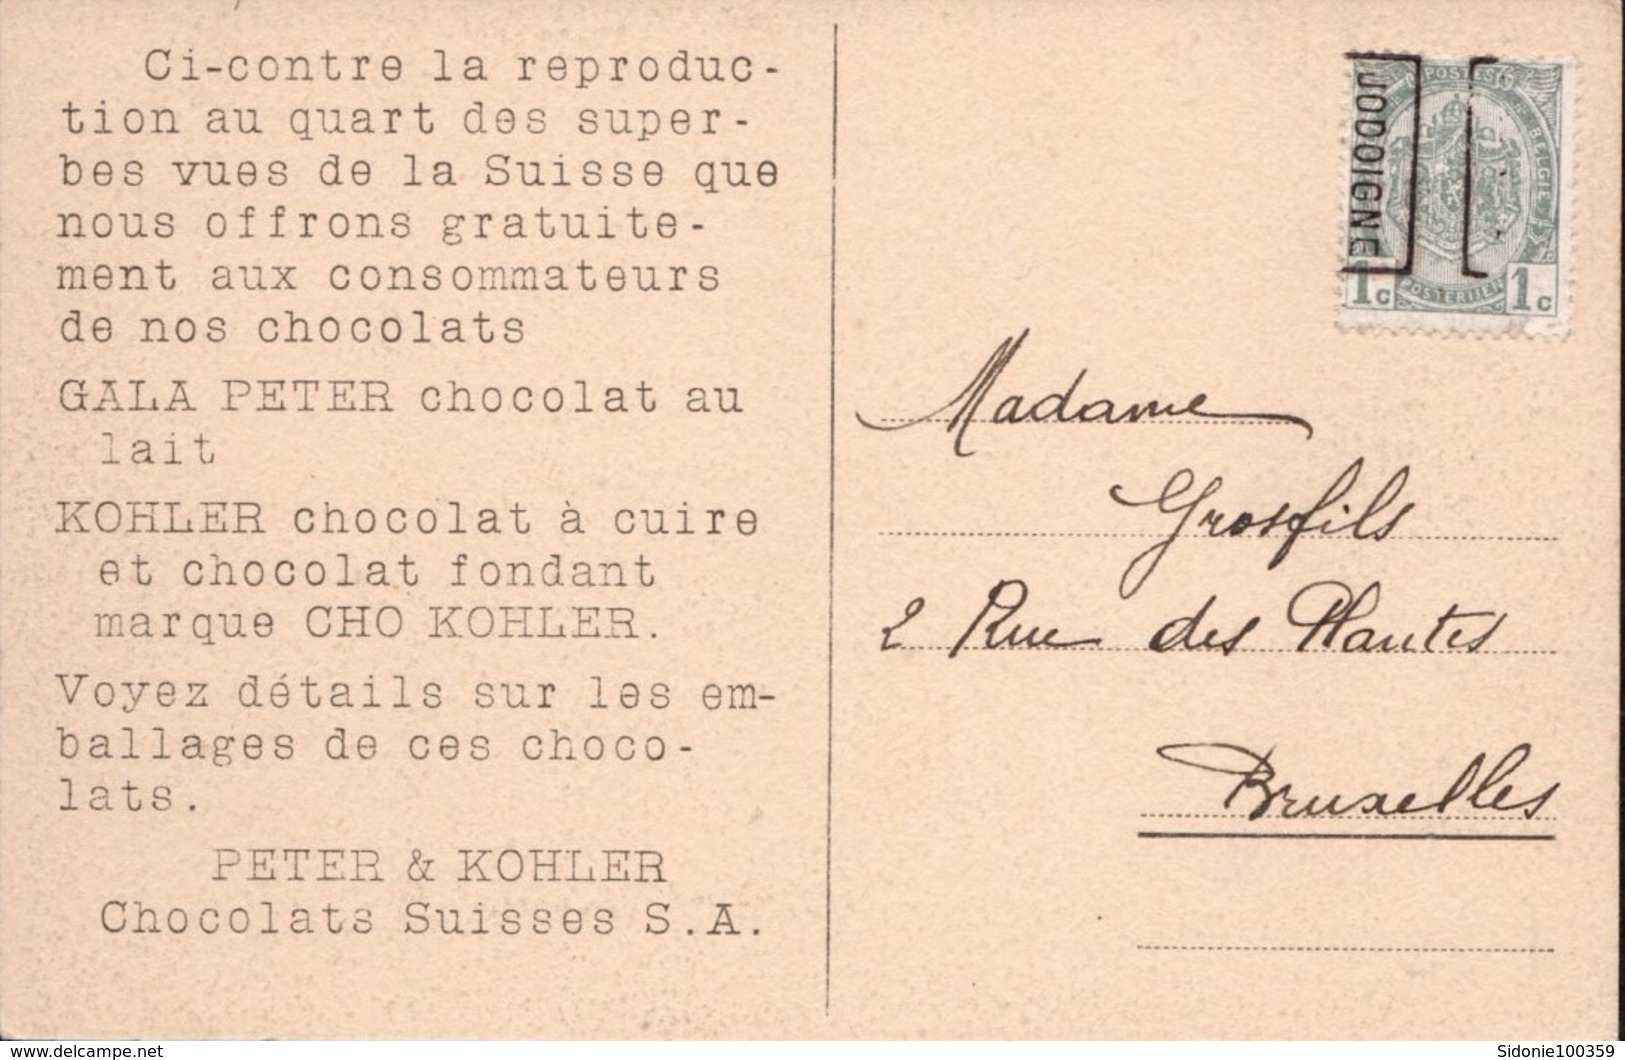 Ci-contre la reproduc-
tion au quart des super-
bes vues de la Suisse que
nous offrons gratuite-
ment aux consommateurs
de nos chocolats
GALA PETER chocolat au
lait
KOHLER chocolat à cuire
et chocolat fondant
marque CHO KOHLER.
Voyez détails sur les em-
ballages de ces choco-
lats.
PETER & KOHLER
Chocolats Suisses S.A.
JODOIGNE
POSTES BELGIE
1c POSTERIJEN 1c
Madame
Grosfils
2 Rue des Plantes
Bruxelles
www.delcampe.net
Sidonie100359